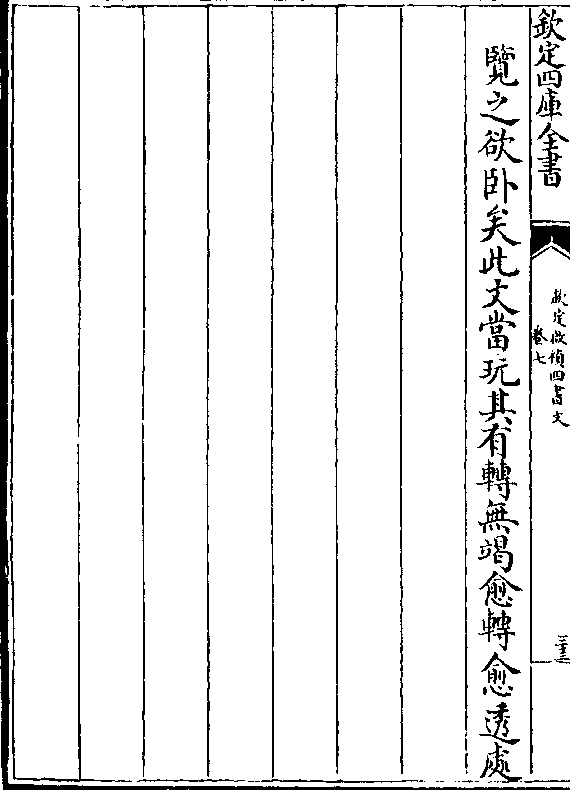 欽定四庫全書
欽定啟禎四書文
卷七
三十三
覽之欲卧矣此文當玩其有轉無竭愈轉愈透處